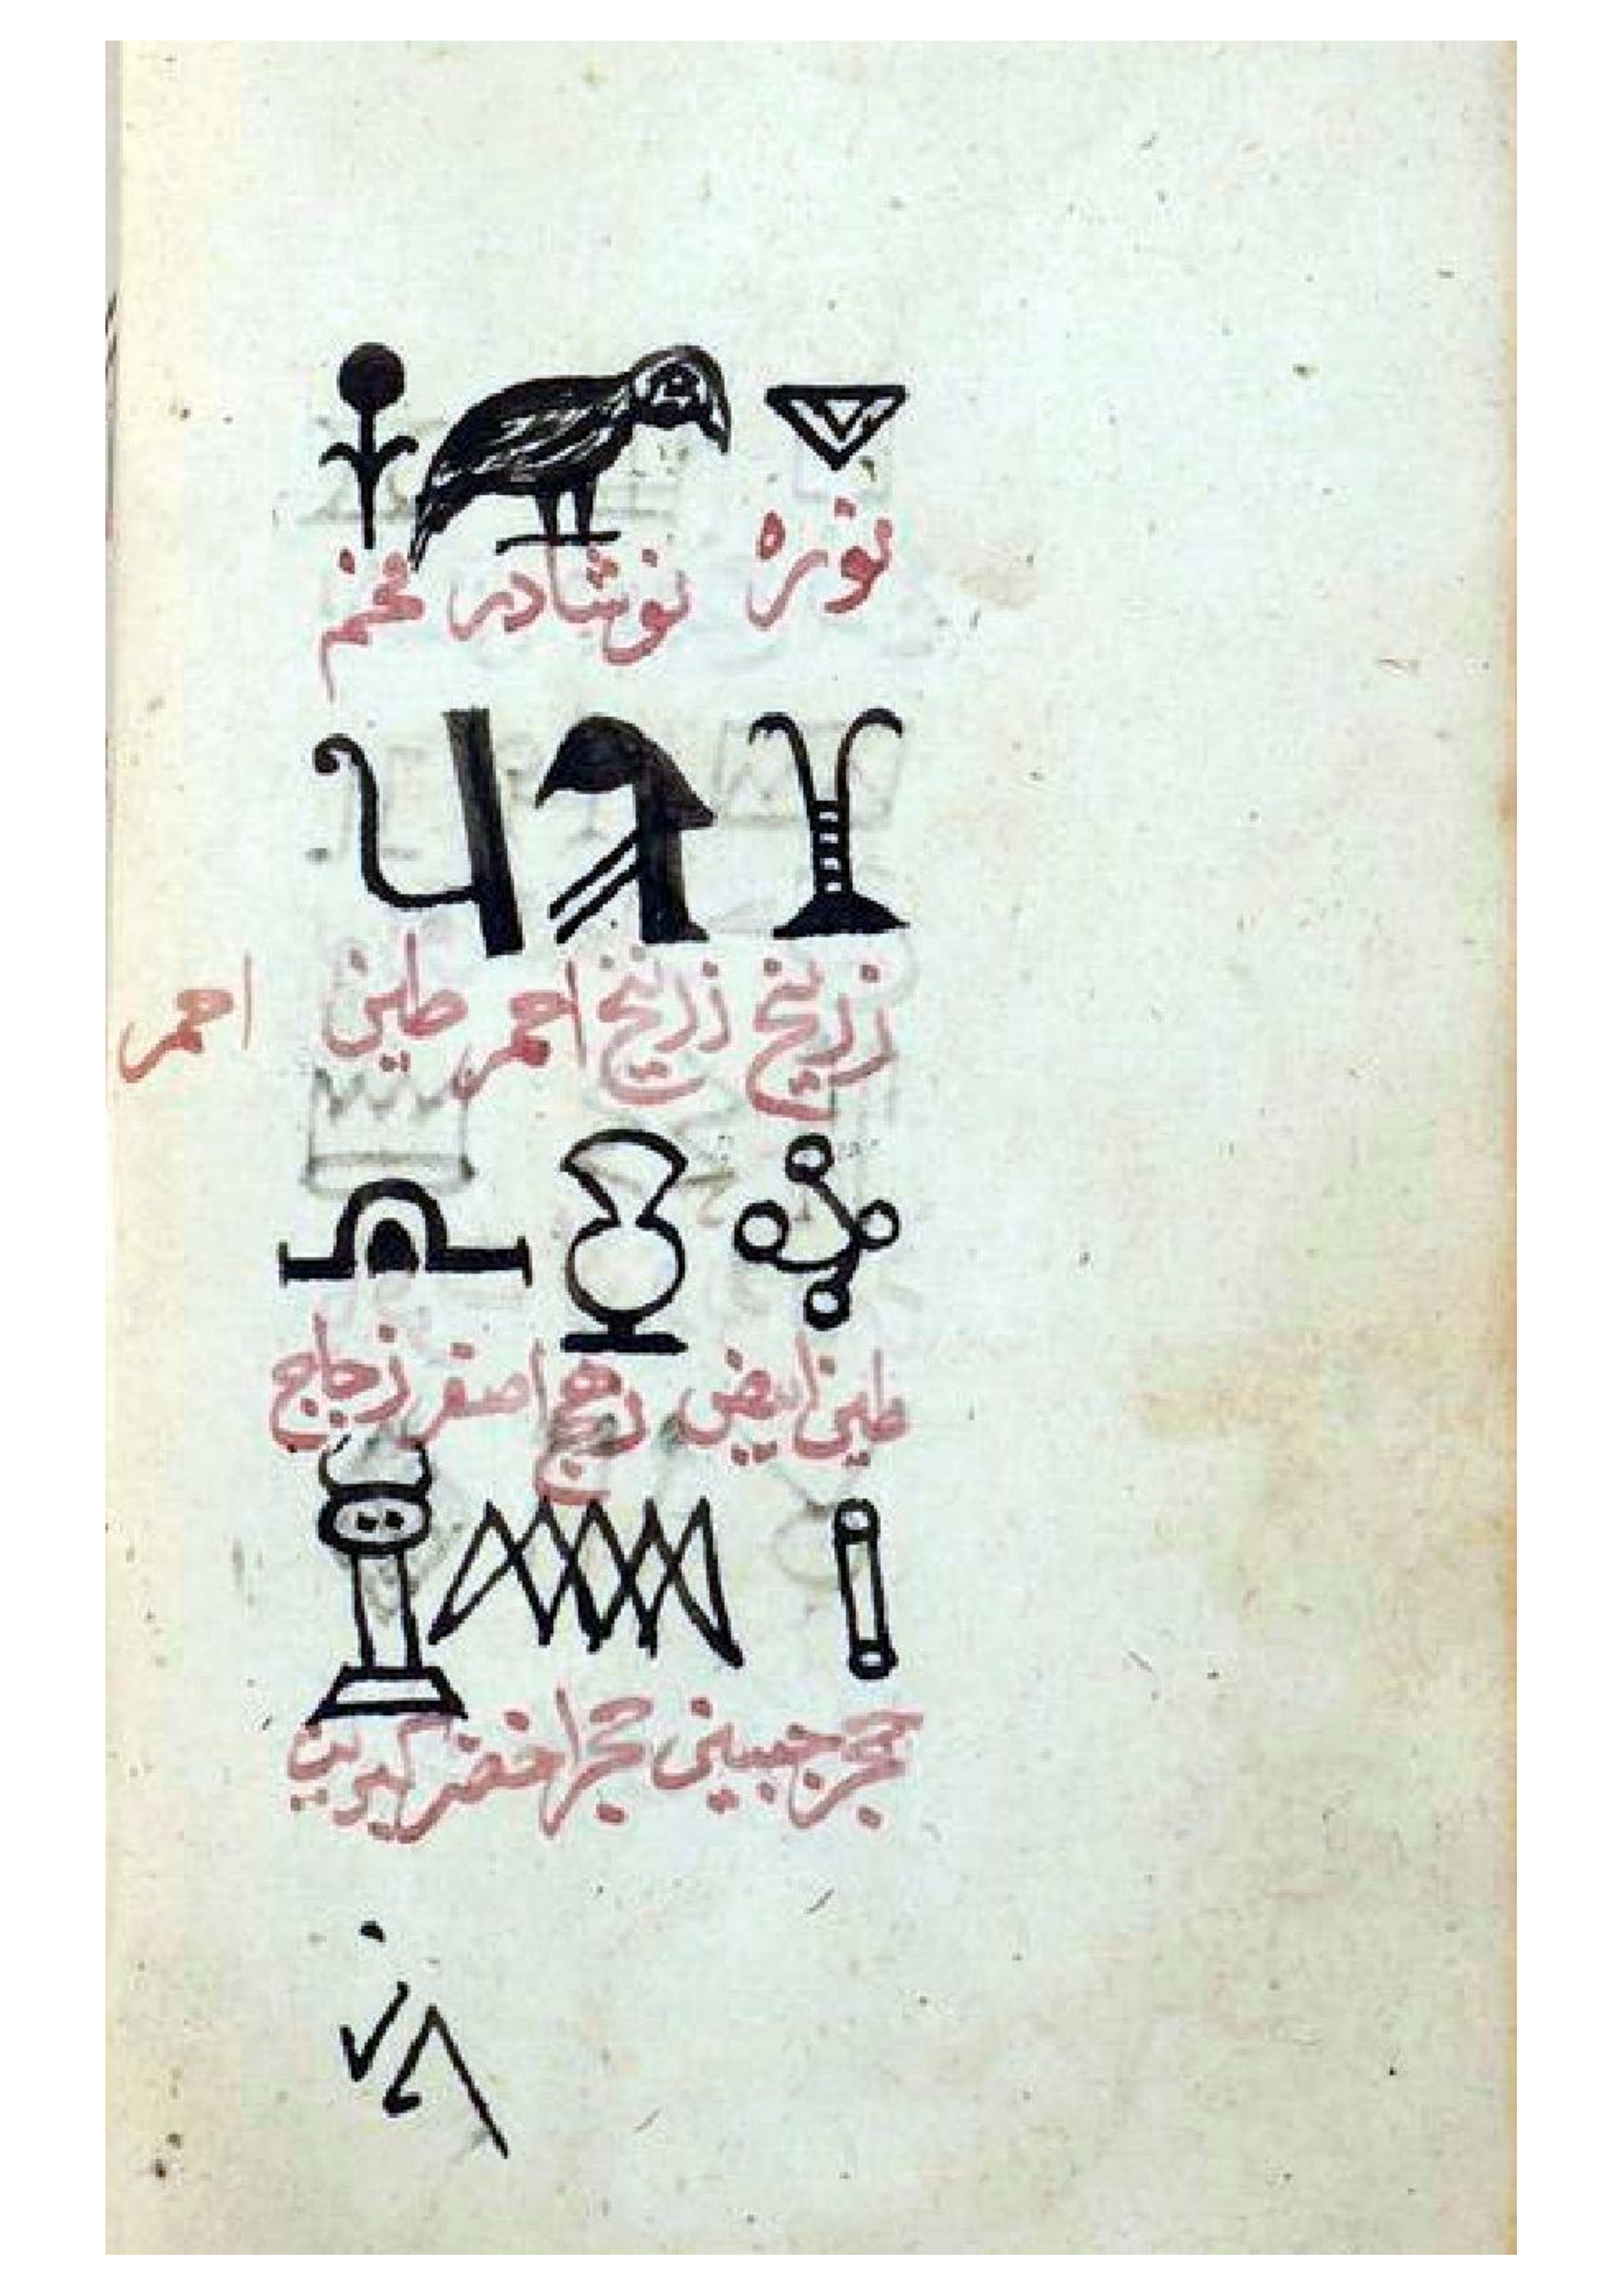 نوره نوشادر فحم
زرنيخ زرنيخ احمر طين احمر
طين ابيض رهج اصفر زجاج
حجر جبسين حجر اخضر كبريت